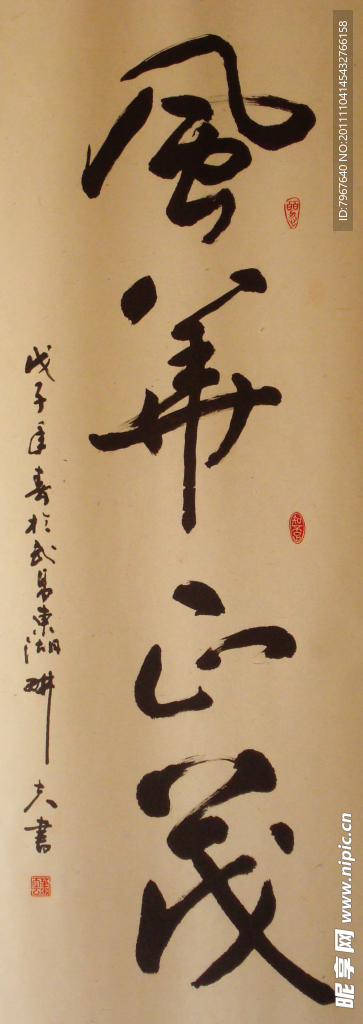 風華正茂
戊子年春於武昌東湖
夫書
NO:20111104145432766158
NO:7967640
昵享网 www.nipic.cn